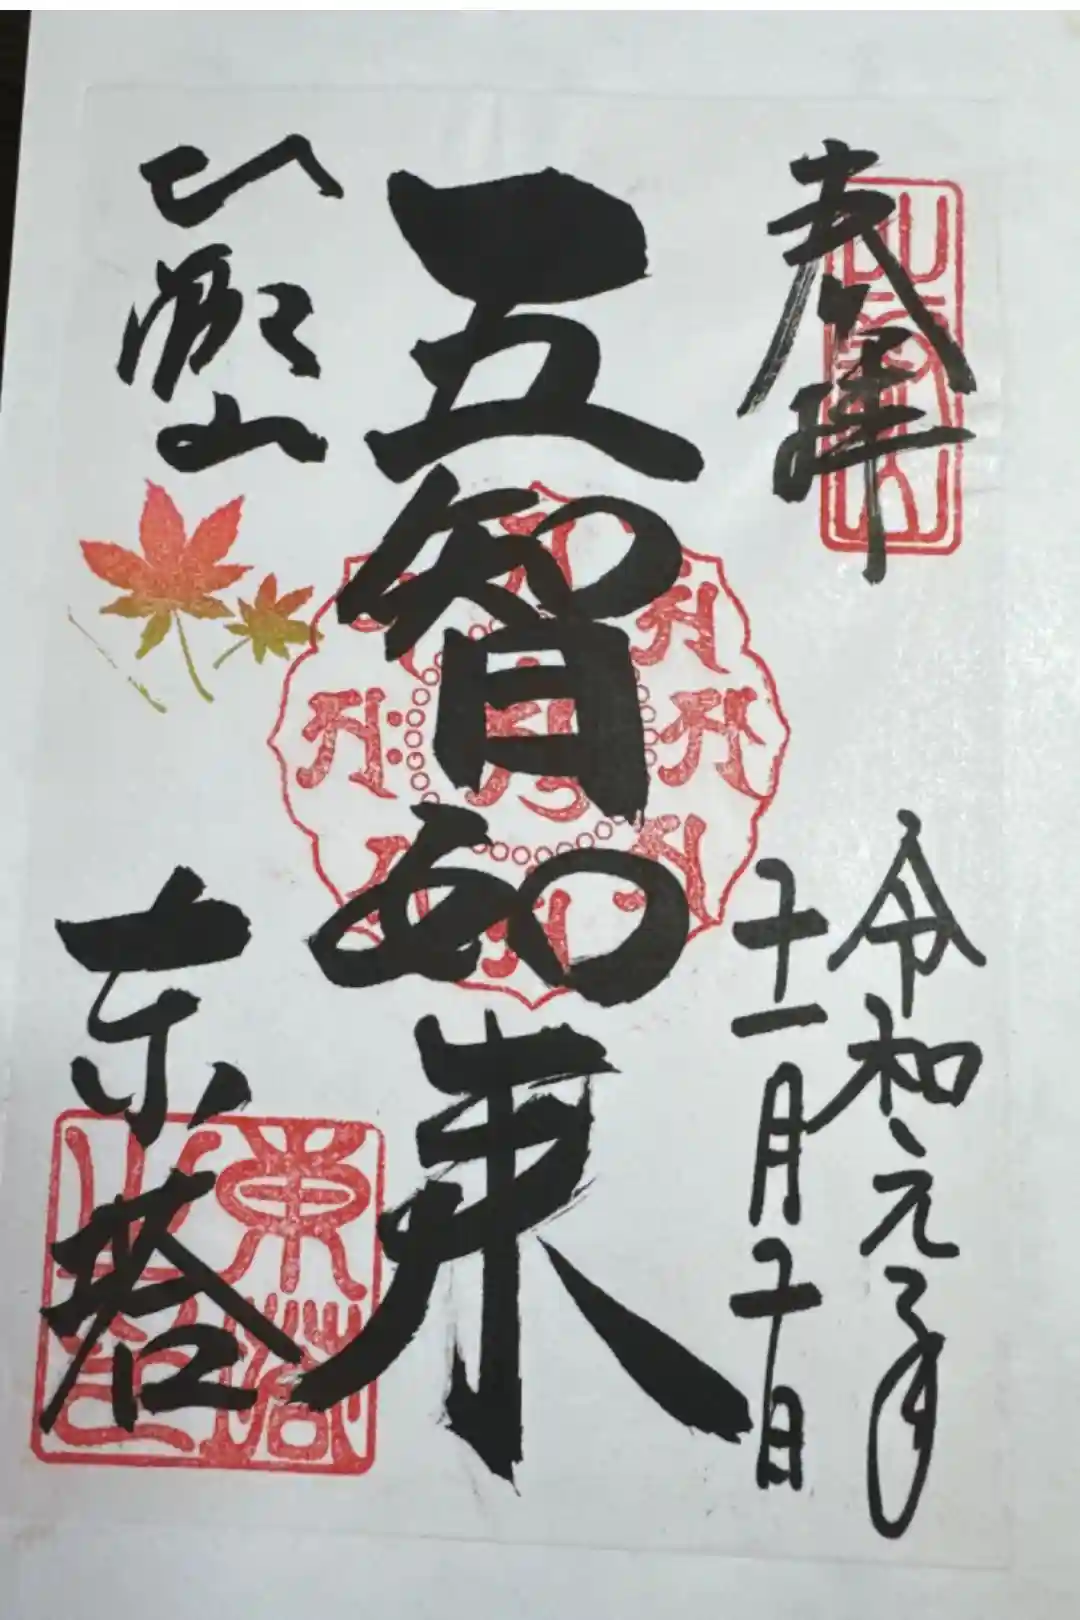 奉拝
令和元年
十一月十一日
五智如来
比叡山
東塔
東塔之印